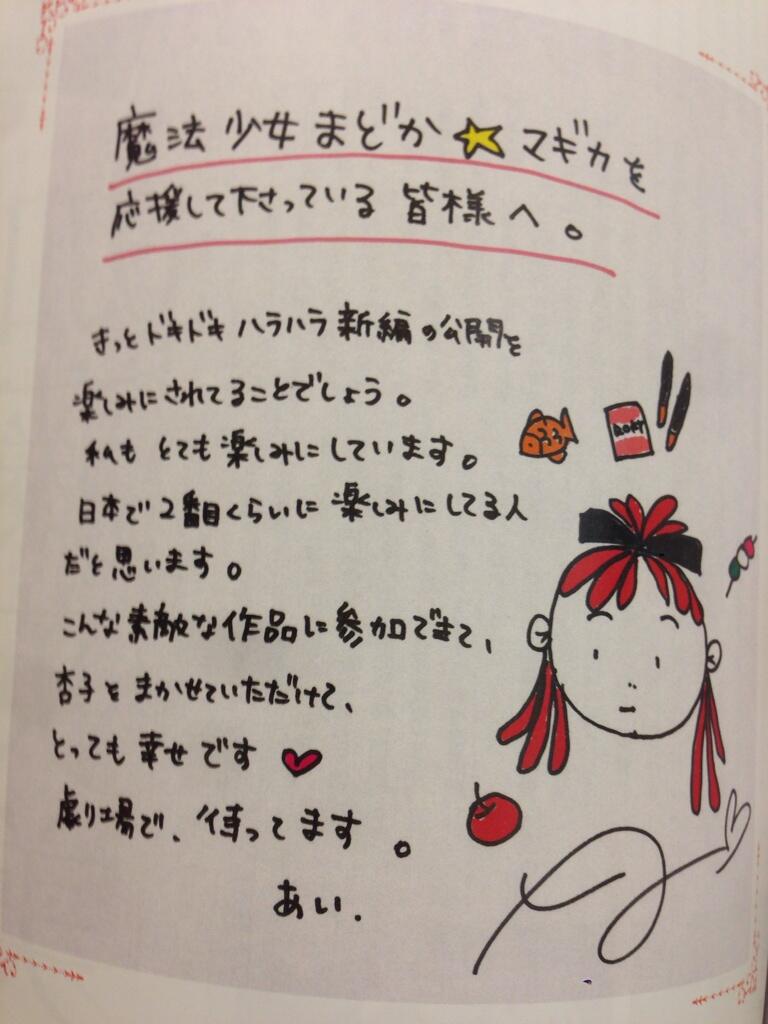 魔法少女まどか★マギカを
応援して下さっている皆様へ。
きっとドキドキハラハラ新編の公開を
楽しみにされてることでしょう。
私もとても楽しみにしています。
日本で2番目くらいに楽しみにしてる人
だと思います。
こんな素敵な作品に参加できて、
杏子をまかせていただけて、
とっても幸せです♥
劇場で、待ってます。
あい.
ROKY